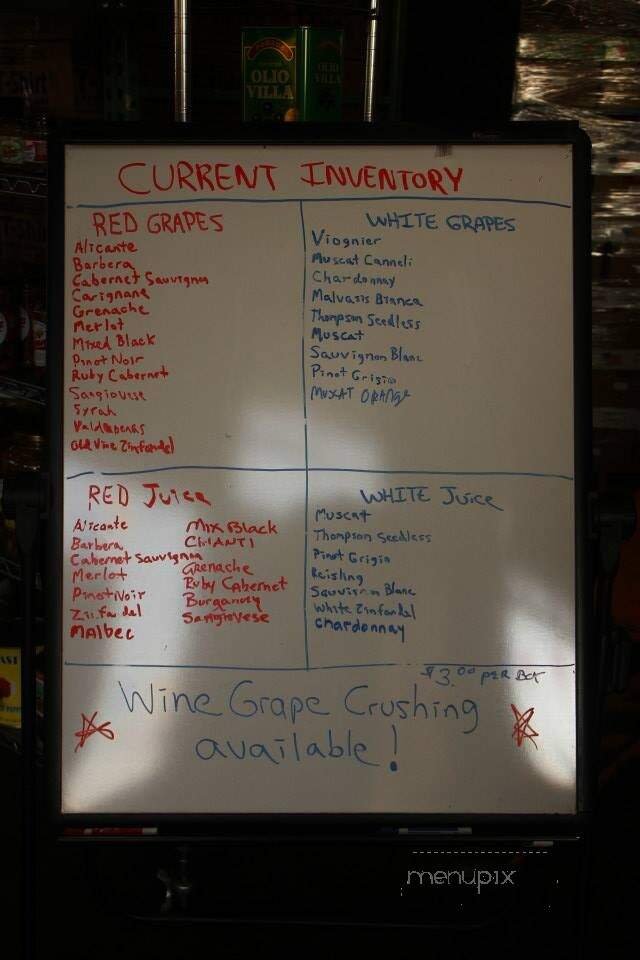 OLIO
VILLA
OLIO
VILLA
CURRENT INVENTORY
RED GRAPES
Alicante
Barbera
Cabernet Sauvignon
Carignane
Grenache
Merlot
Mixed Black
Pinot Noir
Ruby Cabernet
Sangiovese
Syrah
Valdapenas
Old Vine Zinfandel
WHITE GRAPES
Viognier
Muscat Canneli
Chardonnay
Malvasis Bianca
Thompson Seedless
Muscat
Sauvignon Blanc
Pinot Grigio
MUSCAT ORANGE
RED Juice
Alicante
Barbera
Cabernet Sauvignon
Merlot
Pinot Noir
Zinfandel
Malbec
Mix Black
CHIANTI
Grenache
Ruby Cabernet
Burgandy
Sangiovese
WHITE Juice
Muscat
Thompson Seedless
Pinot Grigio
Reisling
Sauvignon Blanc
White Zinfandel
Chardonnay
$3.00 PER BOX
Wine Grape Crushing
available!
menupix